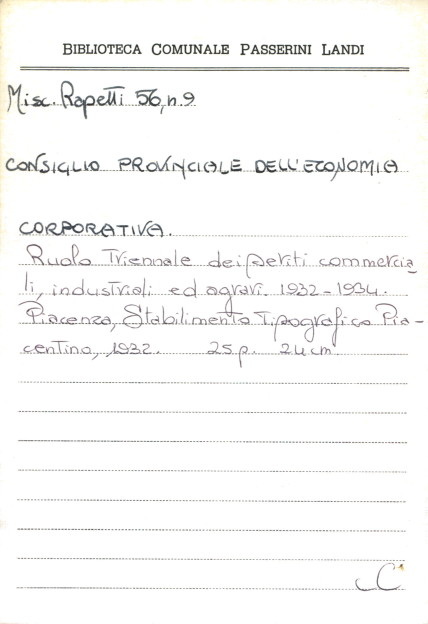 BIBLIOTECA COMUNALE PASSERINI LANDI
Misc. Rapetti 56, n. 9
CONSIGLIO PROVINCIALE DELL'ECONOMIA
CORPORATIVA.
Ruolo Triennale dei periti commercia
li, industriali ed agrari. 1932-1934.
Piacenza, Stabilimento Tipografico Pia-
centino, 1932. 25 p. 24 cm
C